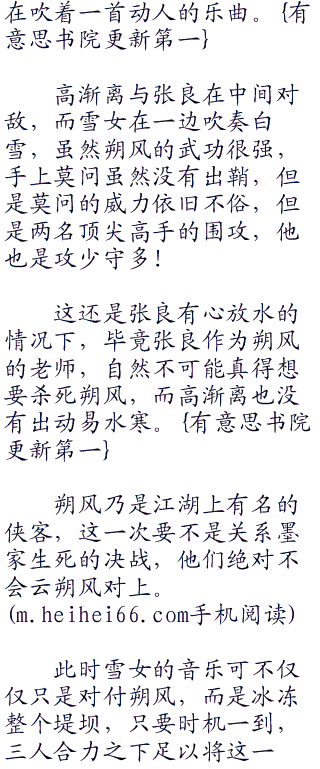 在吹着一首动人的乐曲。{有
意思书院更新第一}
高渐离与张良在中间对
敌，而雪女在一边吹奏白
雪，虽然朔风的武功很强，
手上莫问虽然没有出鞘，但
是莫问的威力依旧不俗，但
是两名顶尖高手的围攻，他
也是攻少守多！
这还是张良有心放水的
情况下，毕竟张良作为朔风
的老师，自然不可能真得想
要杀死朔风，而高渐离也没
有出动易水寒。{有意思书院
更新第一}
朔风乃是江湖上有名的
侠客，这一次要不是关系墨
家生死的决战，他们绝对不
会云朔风对上。
(m.heihei66.com手机阅读)
此时雪女的音乐可不仅
仅只是对付朔风，而是冰冻
整个堤坝，只要时机一到，
三人合力之下足以将这一